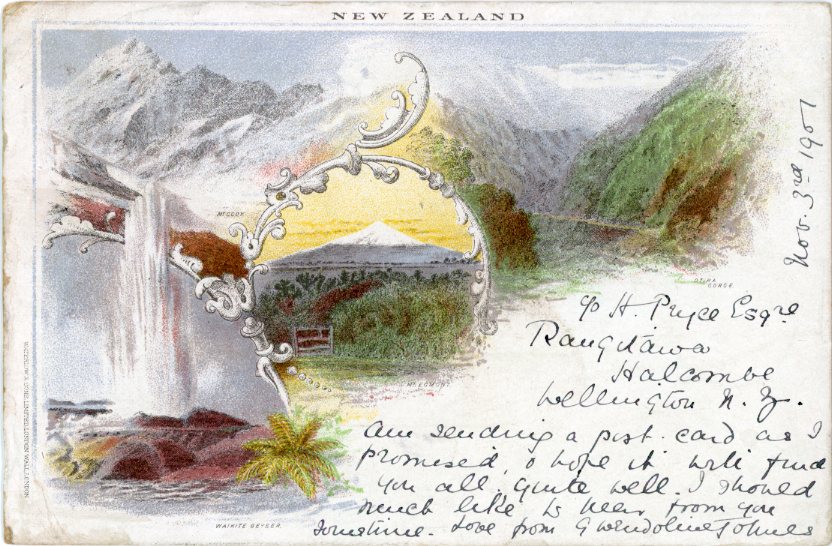 NEW ZEALAND
Nov. 3rd 1901
MT COOK
OTIRA
GORGE.
c/o H. Pryce Esqre
Rangitawa
Halcombe
Wellington N. Z.
MT EGMONT
am sending a post. card as I
promised, & hope it will find
you all quite well. I should
much like to hear from you
sometime. Love from Gwendoline
WAIKITE GEYSER.